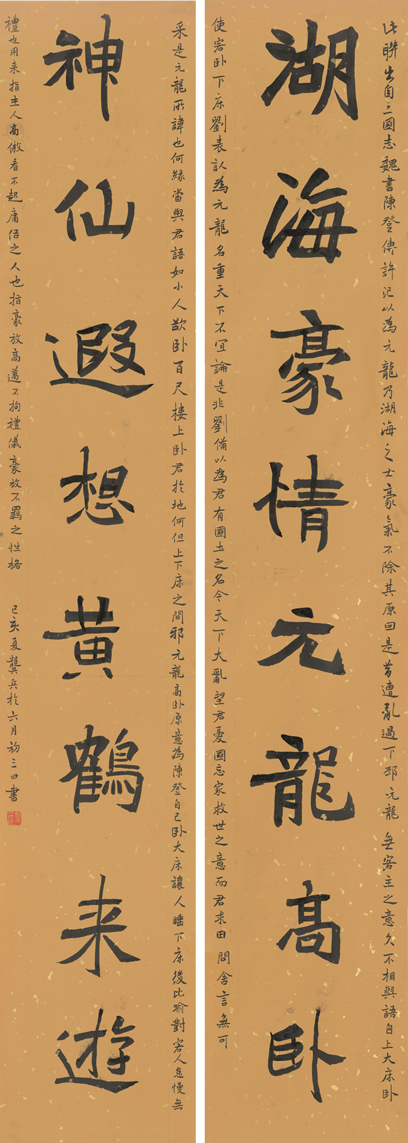 此聯出自三國志魏書陳登傳許汜以為元龍乃湖海之士豪氣不除其原因是昔遭亂過下邳元龍無客主之意久不相與語自上大床臥
湖海豪情元龍高卧
使客卧下床劉表認為元龍名重天下不宜論是非劉備以為君有國士之名今天下大亂望君憂國忘家救世之意而君求田問舍言無可
采是元龍所諱也何緣當與君語如小人欲卧百尺樓上卧君於地何但上下床之間邪元龍高卧原意為陳登自己卧大床讓人睡下床後比喻對客人怠慢無
神仙遐想黄鶴来遊
禮也用来指主人高傲看不起庸俗之人也指豪放高邁不拘禮儀豪放不羈之性格
己亥夏龔兵於六月初三日書